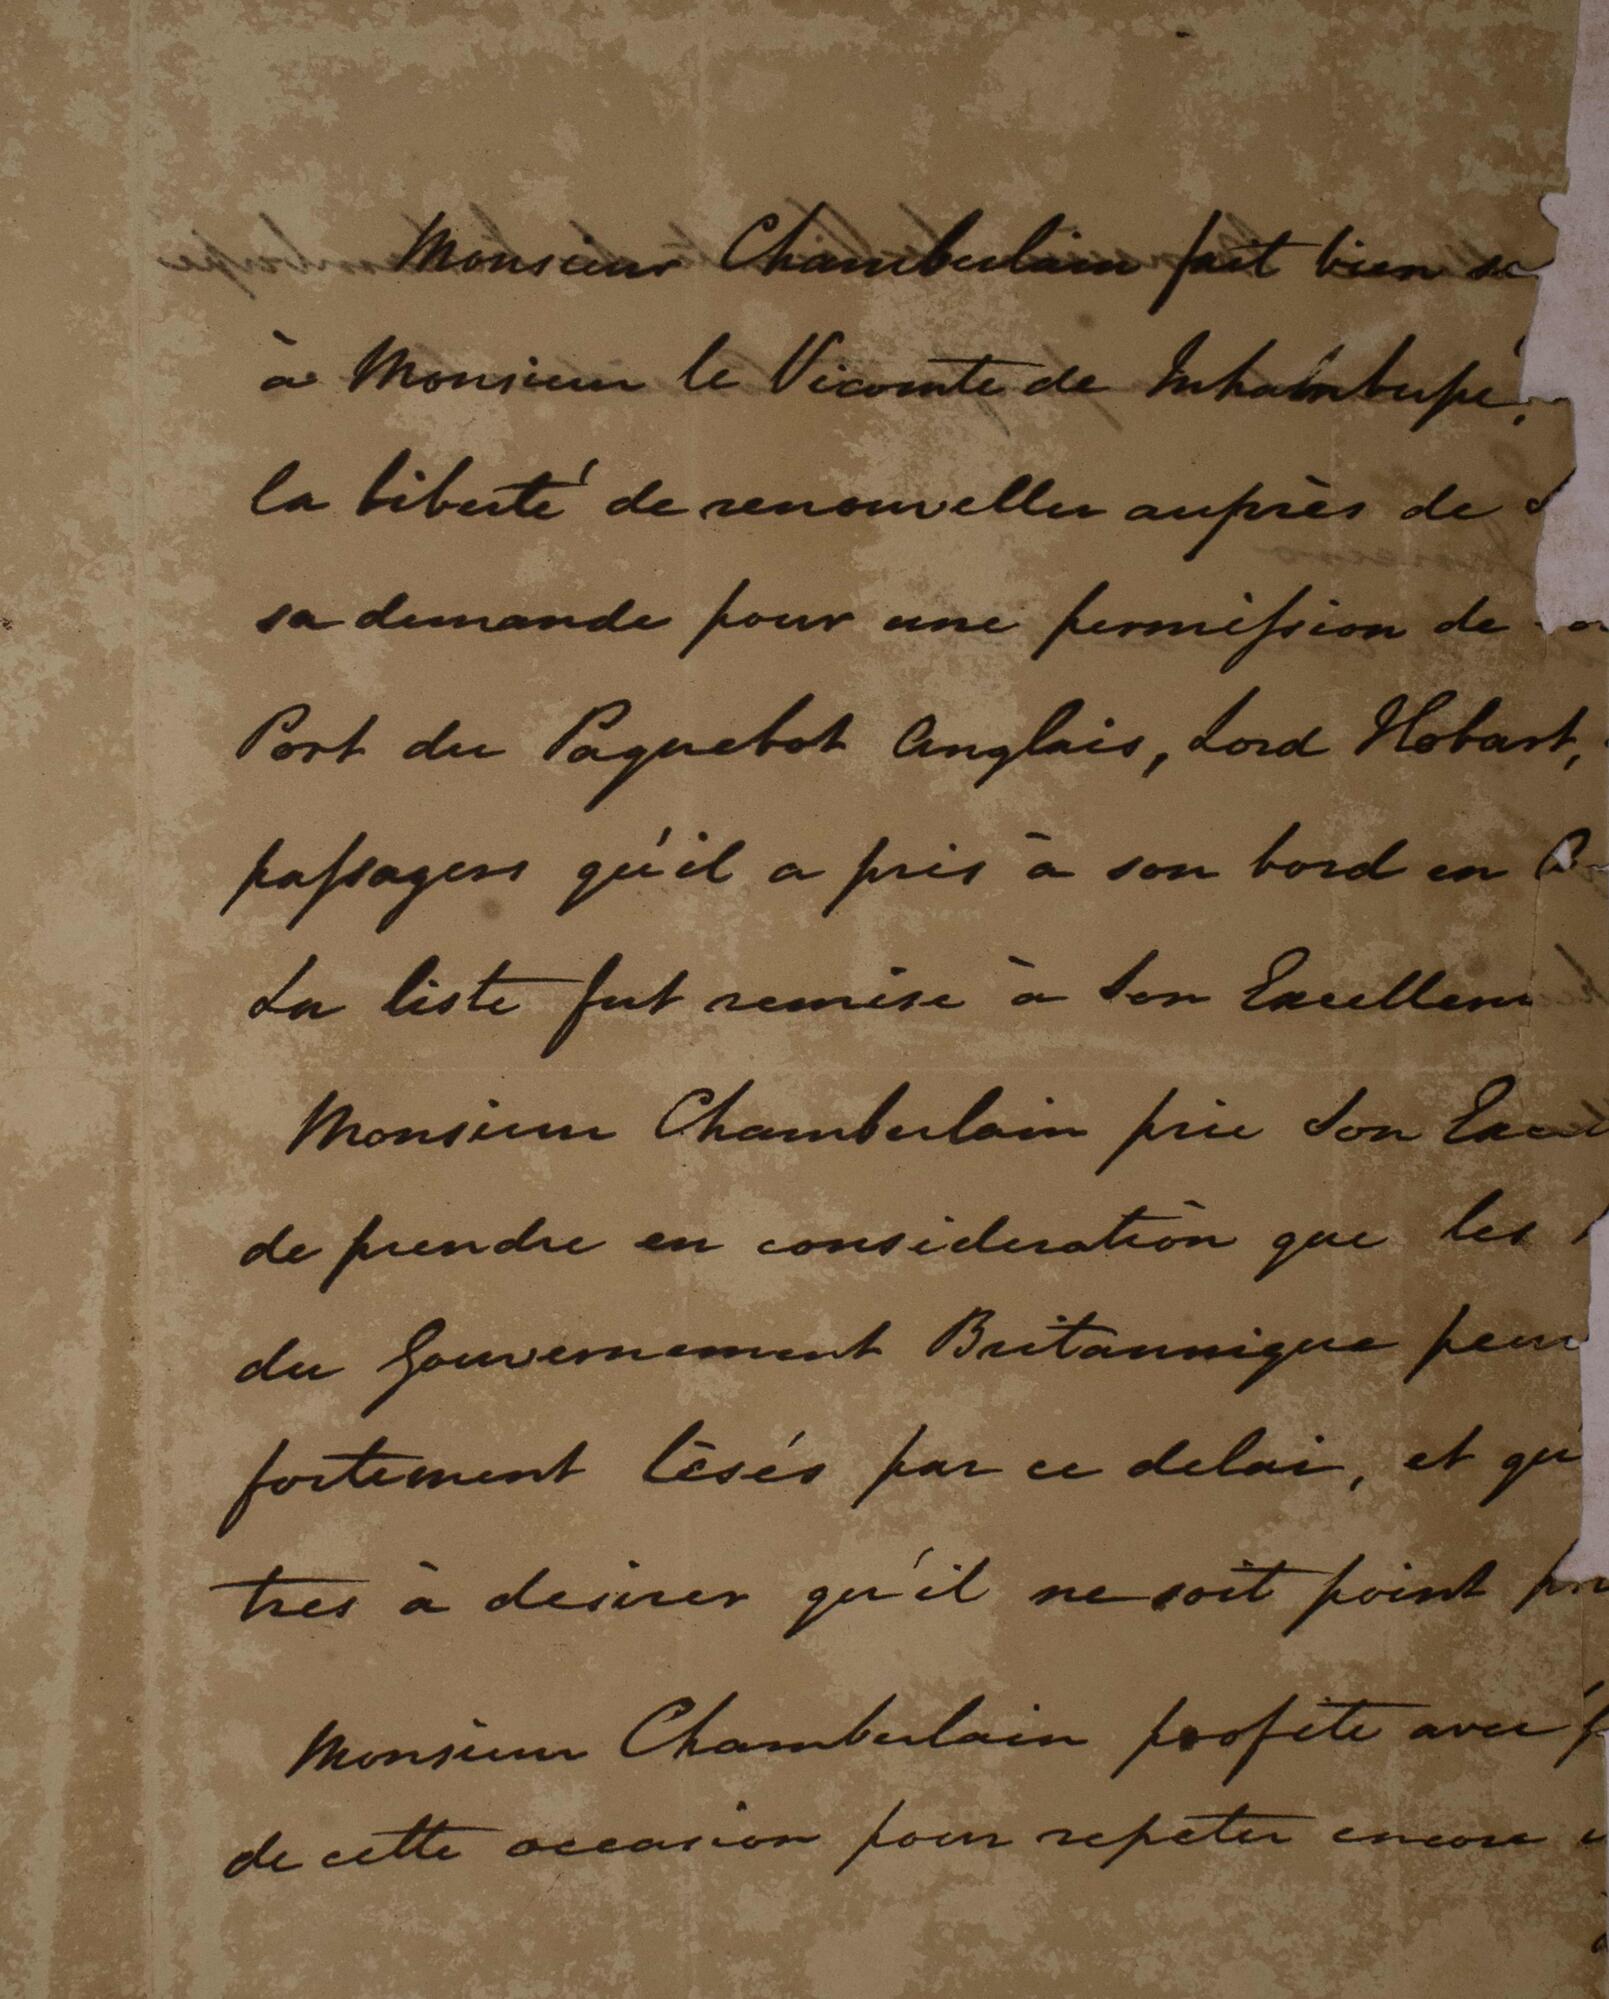 Monsieur Chamberlain fait bien
à Monsieur le Vicomte de Inhambupé,
la liberté de renouveller auprès de
sa demande pour une permission de
Port du Paquebot Anglais, Lord Hobart,
passagers qu'il a pris à son bord en
La liste fut remise à Son Excellen
Monsieur Chamberlain prie Son Excel
de prendre en consideration que les
du Gouvernement Britannique peuv
fortement lèsés par ce delai, et qu'
tres à desirer qu'il ne soit point
Monsieur Chamberlain profite avec
de cette occasion pour repeter encore